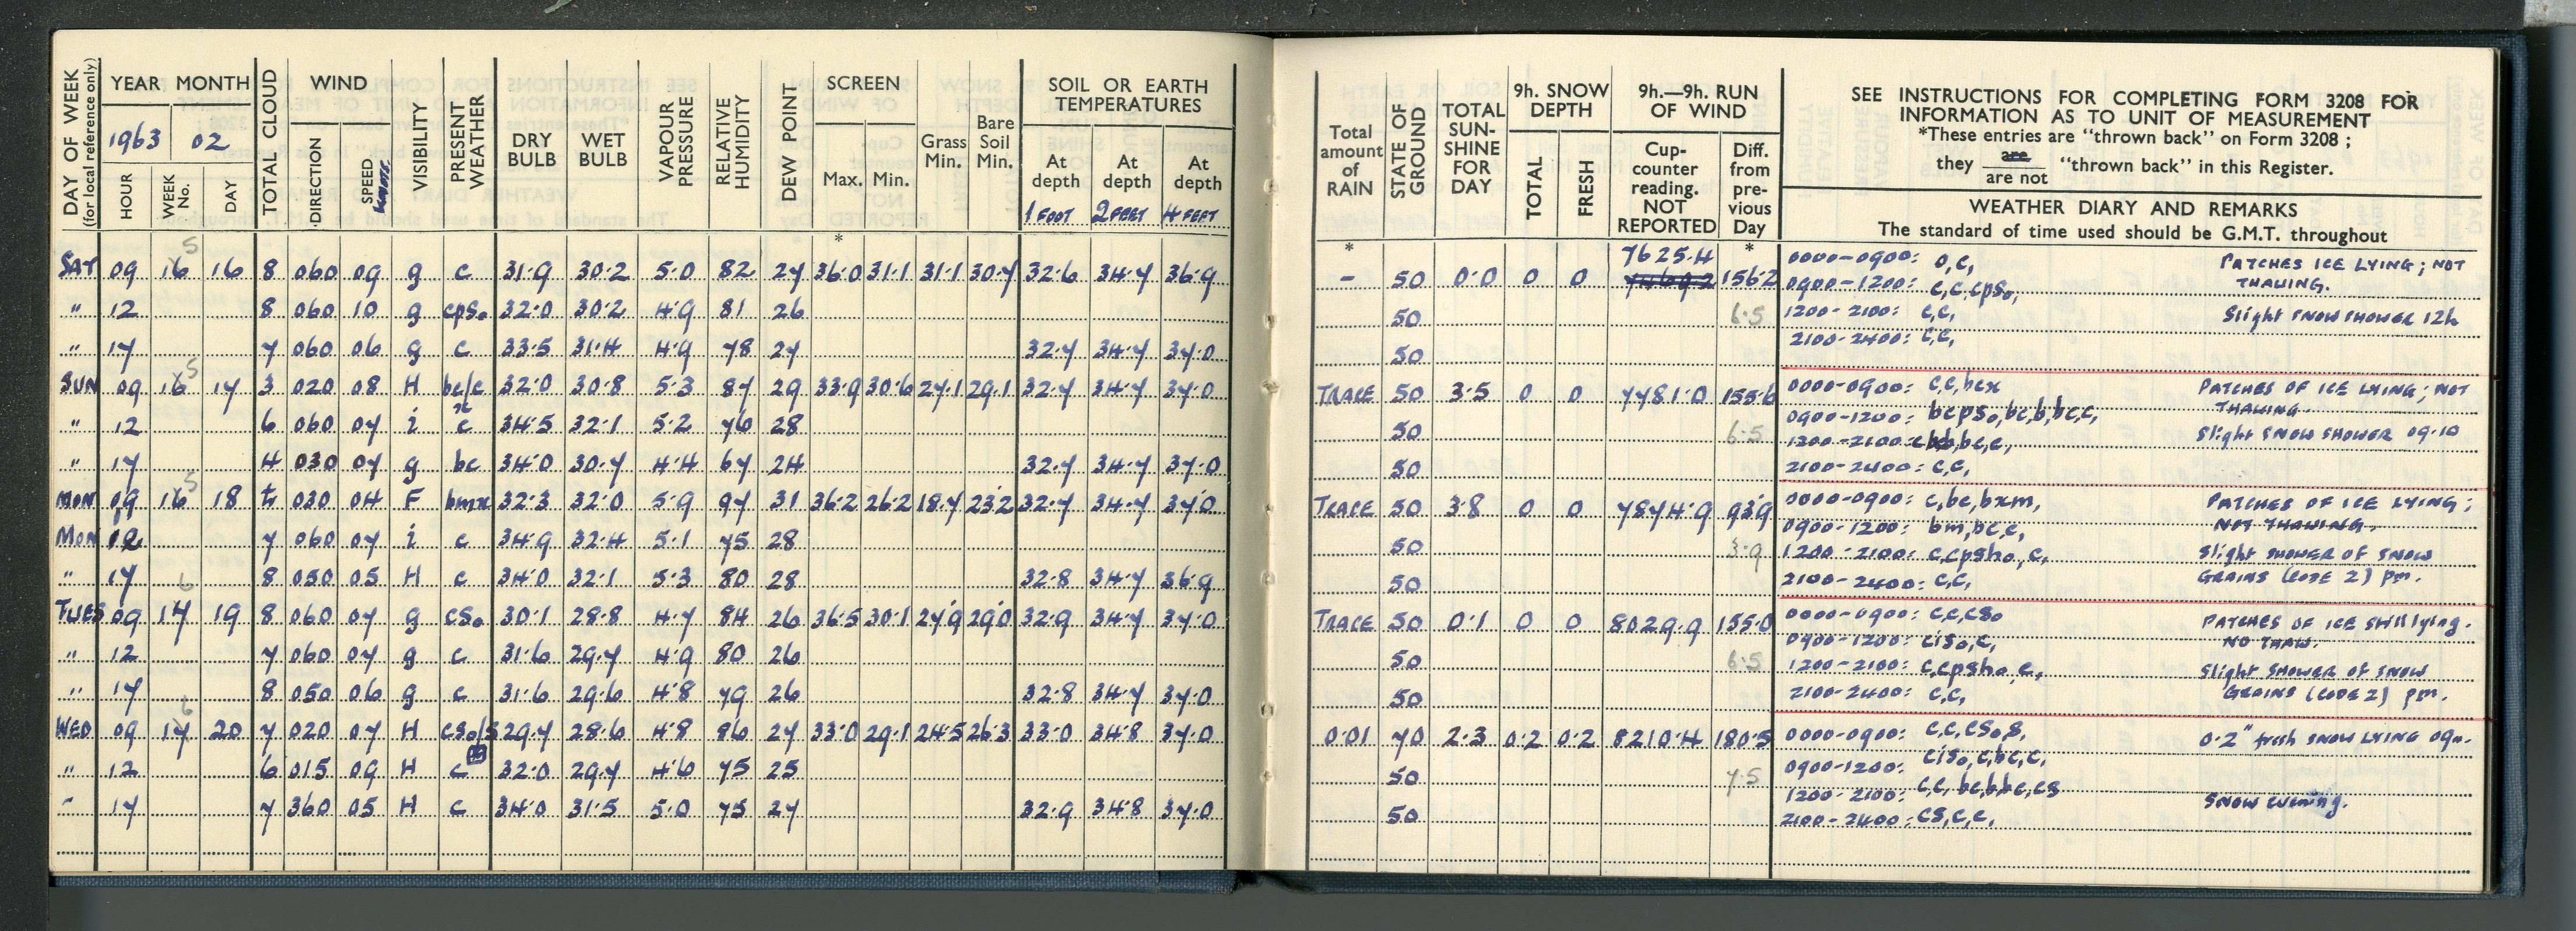 DAY OF WEEK (for local reference only) YEAR MONTH TOTAL CLOUD WIND VISIBILITY PRESENT WEATHER DRY BULB WET BULB VAPOUR PRESSURE RELATIVE HUMIDITY DEW POINT SCREEN Grass Min. Bare Soil Min. SOIL OR EARTH TEMPERATURES
1963 02
HOUR WEEK No. DAY DIRECTION SPEED KNOTS Max. Min. At depth At depth At depth
1 FOOT 2 FEET 4 FEET
*
SAT 09 16 5 16 8 060 09 g c 31.9 30.2 5.0 82 27 36.0 31.1 31.1 30.7 32.6 34.7 36.9
" 12 8 060 10 g cpso 32.0 30.2 4.9 81 26
" 17 7 060 06 g c 33.5 31.4 4.9 78 27 32.7 34.7 37.0
SUN 09 16 5 17 3 020 08 H bc/c 32.0 30.8 5.3 87 29 33.9 30.6 27.1 29.1 32.7 34.7 37.0
" 12 6 060 07 i c 34.5 32.1 5.2 76 28
" 17 4 030 07 g bc 34.0 30.7 4.4 67 24 32.7 34.7 37.0
MON 09 16 5 18 tr 030 04 F bmx 32.3 32.0 5.9 97 31 36.2 26.2 18.7 23.2 32.7 34.7 37.0
MON 12 7 060 07 i c 34.9 32.4 5.1 75 28
" 17 8 050 05 H c 34.0 32.1 5.3 80 28 32.8 34.7 36.9
TUES 09 17 6 19 8 060 07 g cso 30.1 28.8 4.7 84 26 36.5 30.1 27.9 29.0 32.9 34.7 37.0
" 12 7 060 07 g c 31.6 29.7 4.9 80 26
" 17 8 050 06 g c 31.6 29.6 4.8 79 26 32.8 34.7 37.0
WED 09 17 6 20 7 020 07 H cso/s 29.7 28.6 4.8 86 27 33.0 29.1 24.5 26.3 33.0 34.8 37.0
" 12 6 015 09 H c 32.0 29.7 4.6 75 25
" 17 7 360 05 H c 34.0 31.5 5.0 75 27 32.9 34.8 37.0
Total amount of RAIN STATE OF GROUND TOTAL SUN-SHINE FOR DAY 9h. SNOW DEPTH TOTAL FRESH 9h.—9h. RUN OF WIND Cup-counter reading. NOT REPORTED Diff. from pre-vious Day
SEE INSTRUCTIONS FOR COMPLETING FORM 3208 FOR
INFORMATION AS TO UNIT OF MEASUREMENT
*These entries are "thrown back" on Form 3208 ;
they are / are not "thrown back" in this Register.
WEATHER DIARY AND REMARKS
The standard of time used should be G.M.T. throughout
* *
7625.4
- 50 0.0 0 0 156.2 0000-0900: o,c, PATCHES ICE LYING; NOT
0900-1200: c,c,cpso, THAWING.
50 6.5 1200-2100: c,c, Slight SNOW SHOWER 12h
50 2100-2400: c,c,
TRACE 50 3.5 0 0 7781.0 155.6 0000-0900: c,c,bcx PATCHES OF ICE LYING; NOT
0900-1200: bcpso,bc,b,bc,c, THAWING.
50 6.5 1200-2100: bc,c, Slight SNOW SHOWER 09-10
50 2100-2400: c,c,
TRACE 50 3.8 0 0 7874.9 93.9 0000-0900: c,bc,bxm, PATCHES OF ICE LYING;
0900-1200: bm,bc,c, NOT THAWING.
50 3.9 1200-2100: c,cpsho,c, Slight SHOWER OF SNOW
50 2100-2400: c,c, GRAINS (CODE 2) pm.
TRACE 50 0.1 0 0 8029.9 155.0 0000-0900: c,c,cso PATCHES OF ICE still lying.
0900-1200: ciso,c, NO THAW.
50 6.5 1200-2100: c,cpsho,c, Slight SHOWER OF SNOW
50 2100-2400: c,c, GRAINS (CODE 2) pm.
0.01 70 2.3 0.2 0.2 8210.4 180.5 0000-0900: c,c,cso,s, 0.2" fresh SNOW LYING 09h.
0900-1200: ciso,c,bc,c,
50 7.5 1200-2100: c,c,bc,bbc,cs
50 2100-2400: cs,c,c, SNOW evening.